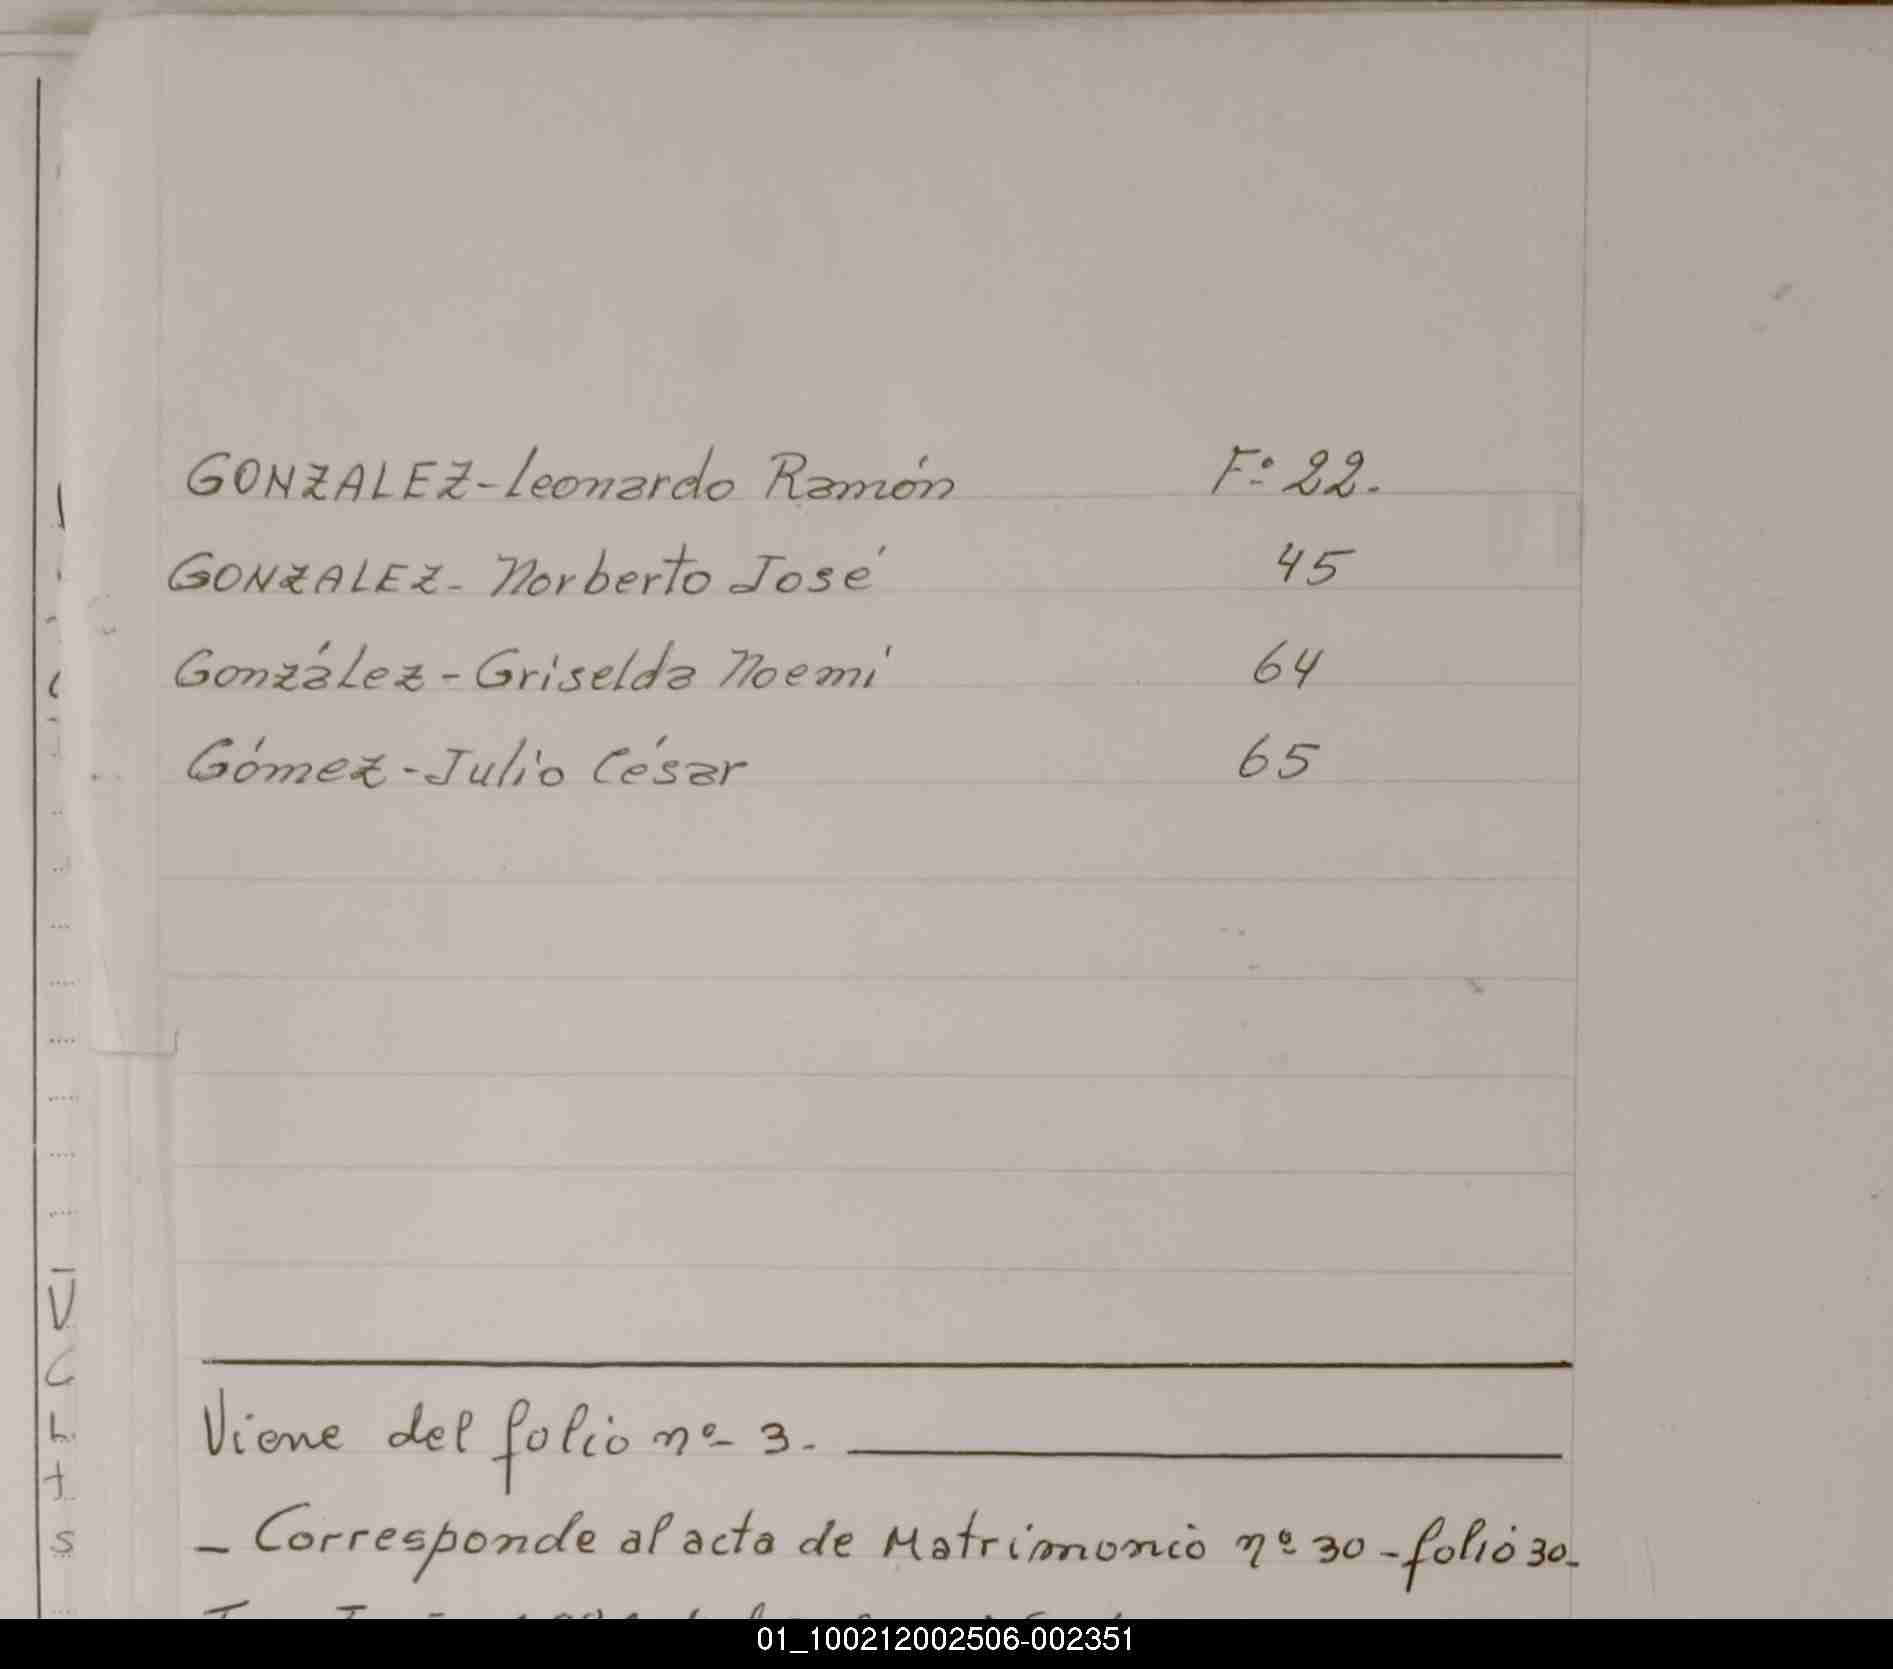 GONZALEZ-Leonardo Ramón F:º 22.
GONZALEZ- Norberto José 45
González-Griselda Noemí 64
Gómez-Julio César 65
Viene del folio nº 3.
- Corresponde al acta de Matrimonio nº 30-folio 30-
01_100212002506-002351